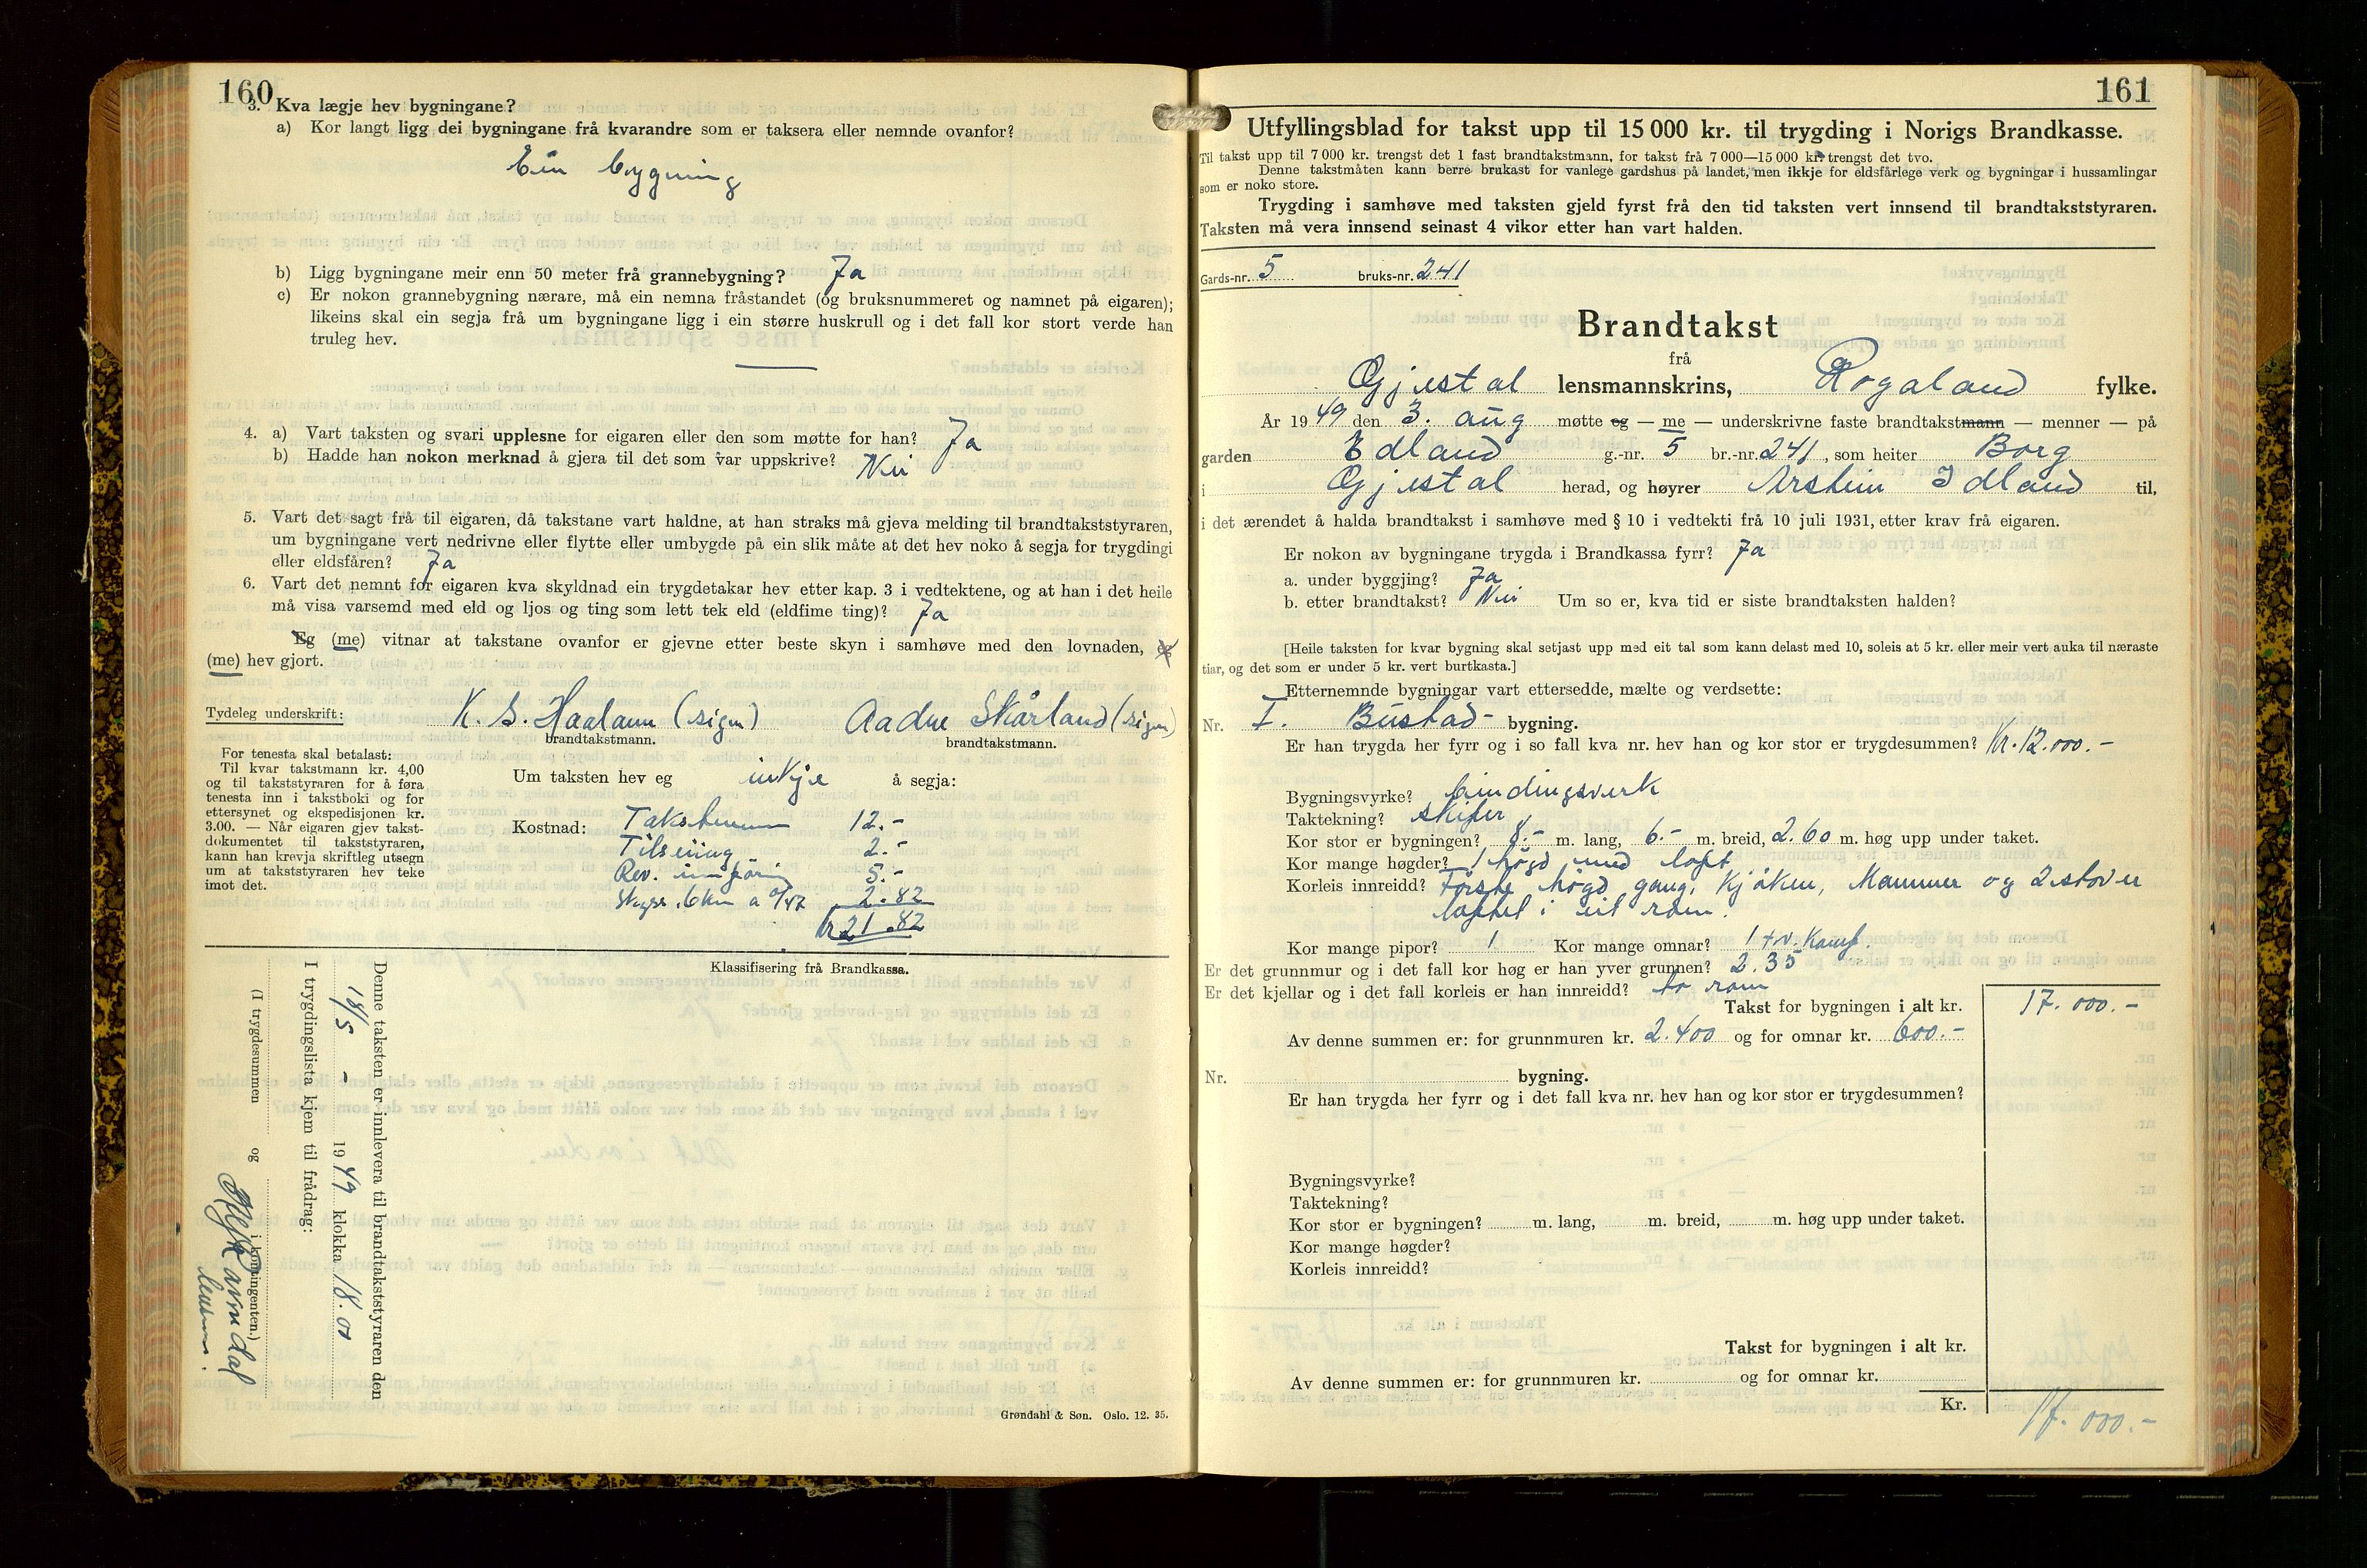 160
3. Kva lægje hev bygningane?
a) Kor langt ligg dei bygningane frå kvarandre som er taksera eller nemnde ovanfor?
Ein bygning
b) Ligg bygningane meir enn 50 meter frå grannebygning? Ja
c) Er nokon grannebygning nærare, må ein nemna fråstandet (óg bruksnummeret og namnet på eigaren);
likeins skal ein segja frå um bygningane ligg i ein større huskrull og i det fall kor stort verde han
truleg hev.
4. a) Vart taksten og svari upplesne for eigaren eller den som møtte for han? Ja
b) Hadde han nokon merknad å gjera til det som var uppskrive? Nei
5. Vart det sagt frå til eigaren, då takstane vart haldne, at han straks må gjeva melding til brandtakststyraren,
um bygningane vert nedrivne eller flytte eller umbygde på ein slik måte at det hev noko å segja for trygdingi
eller eldsfåren? Ja
6. Vart det nemnt for eigaren kva skyldnad ein trygdetakar hev etter kap. 3 i vedtektene, og at han i det heile
må visa varsemd med eld og ljos og ting som lett tek eld (eldfime ting)? Ja
Eg (me) vitnar at takstane ovanfor er gjevne etter beste skyn i samhøve med den lovnaden, eg
(me) hev gjort.
Tydeleg underskrift: K. S. Haaland (sign) Aadne Skårland (sign)
brandtakstmann. brandtakstmann.
For tenesta skal betalast:
Til kvar takstmann kr. 4,00
og til takststyraren for å føra
tenesta inn i takstboki og for
ettersynet og ekspedisjonen kr.
3.00. — Når eigaren gjev takst-
dokumentet til takststyraren,
kann han krevja skriftleg utsegn
um at takststyraren hev teke
imot det.
Um taksten hev eg inkje å segja:
Kostnad: Takstmenn 12.-
Tilseiing 2.-
Rev. innføring 5.-
Skyss 6 km a 0/47 2.82
kr 21.82
Klassifisering frå Brandkassa.
Denne taksten er innlevera til brandtakststyraren den
18/5 - 1949 klokka 18.00
I trygdingslista kjem til frådrag:
(I trygdesummen og i kontingenten.)
lensm.
Grøndahl & Søn. Oslo. 12. 35.
161
Utfyllingsblad for takst upp til 15 000 kr. til trygding i Norigs Brandkasse.
Til takst upp til 7 000 kr. trengst det 1 fast brandtakstmann, for takst frå 7 000—15 000 kr. trengst det tvo.
Denne takstmåten kann berre brukast for vanlege gardshus på landet, men ikkje for eldsfårlege verk og bygningar i hussamlingar
som er noko store.
Trygding i samhøve med taksten gjeld fyrst frå den tid taksten vert innsend til brandtakststyraren.
Taksten må vera innsend seinast 4 vikor etter han vart halden.
Gards-nr. 5 bruks-nr. 241
Brandtakst
frå
Gjestal lensmannskrins, Rogaland fylke.
År 1949 den 3. aug møtte eg — me — underskrivne faste brandtakstmann — menner — på
garden Edland g.-nr. 5 br.-nr. 241, som heiter Borg
i Gjestal herad, og høyrer Arstein Idland til,
i det ærendet å halda brandtakst i samhøve med § 10 i vedtekti frå 10 juli 1931, etter krav frå eigaren.
Er nokon av bygningane trygda i Brandkassa fyrr? Ja
a. under byggjing? Ja
b. etter brandtakst? Nei Um so er, kva tid er siste brandtaksten halden?
[Heile taksten for kvar bygning skal setjast upp med eit tal som kann delast med 10, soleis at 5 kr. eller meir vert auka til næraste
tiar, og det som er under 5 kr. vert burtkasta.]
Etternemnde bygningar vart ettersedde, mælte og verdsette:
Nr. I. Bustad- bygning.
Er han trygda her fyrr og i so fall kva nr. hev han og kor stor er trygdesummen? Kr. 12.000.-
Bygningsvyrke? bindingsverk
Taktekning? skifer
Kor stor er bygningen? 8.- m. lang, 6.- m. breid, 2.60 m. høg upp under taket.
Kor mange høgder? 1 høgd med loft
Korleis innreidd? Første høgd gang, kjøken, kammer og 2 stover
loftet i eit rom.
Kor mange pipor? 1 Kor mange omnar? 1 + v. Komf.
Er det grunnmur og i det fall kor høg er han yver grunnen? 2.35
Er det kjellar og i det fall korleis er han innreidd? to rom
Takst for bygningen i alt kr. 17.000.-
Av denne summen er: for grunnmuren kr. 2.400 og for omnar kr. 600.-
Nr. bygning.
Er han trygda her fyrr og i det fall kva nr. hev han og kor stor er trygdesummen?
Bygningsvyrke?
Taktekning?
Kor stor er bygningen? m. lang, m. breid, m. høg upp under taket.
Kor mange høgder?
Korleis innreidd?
Takst for bygningen i alt kr.
Av denne summen er: for grunnmuren kr. og for omnar kr.
Kr. 17.000.-